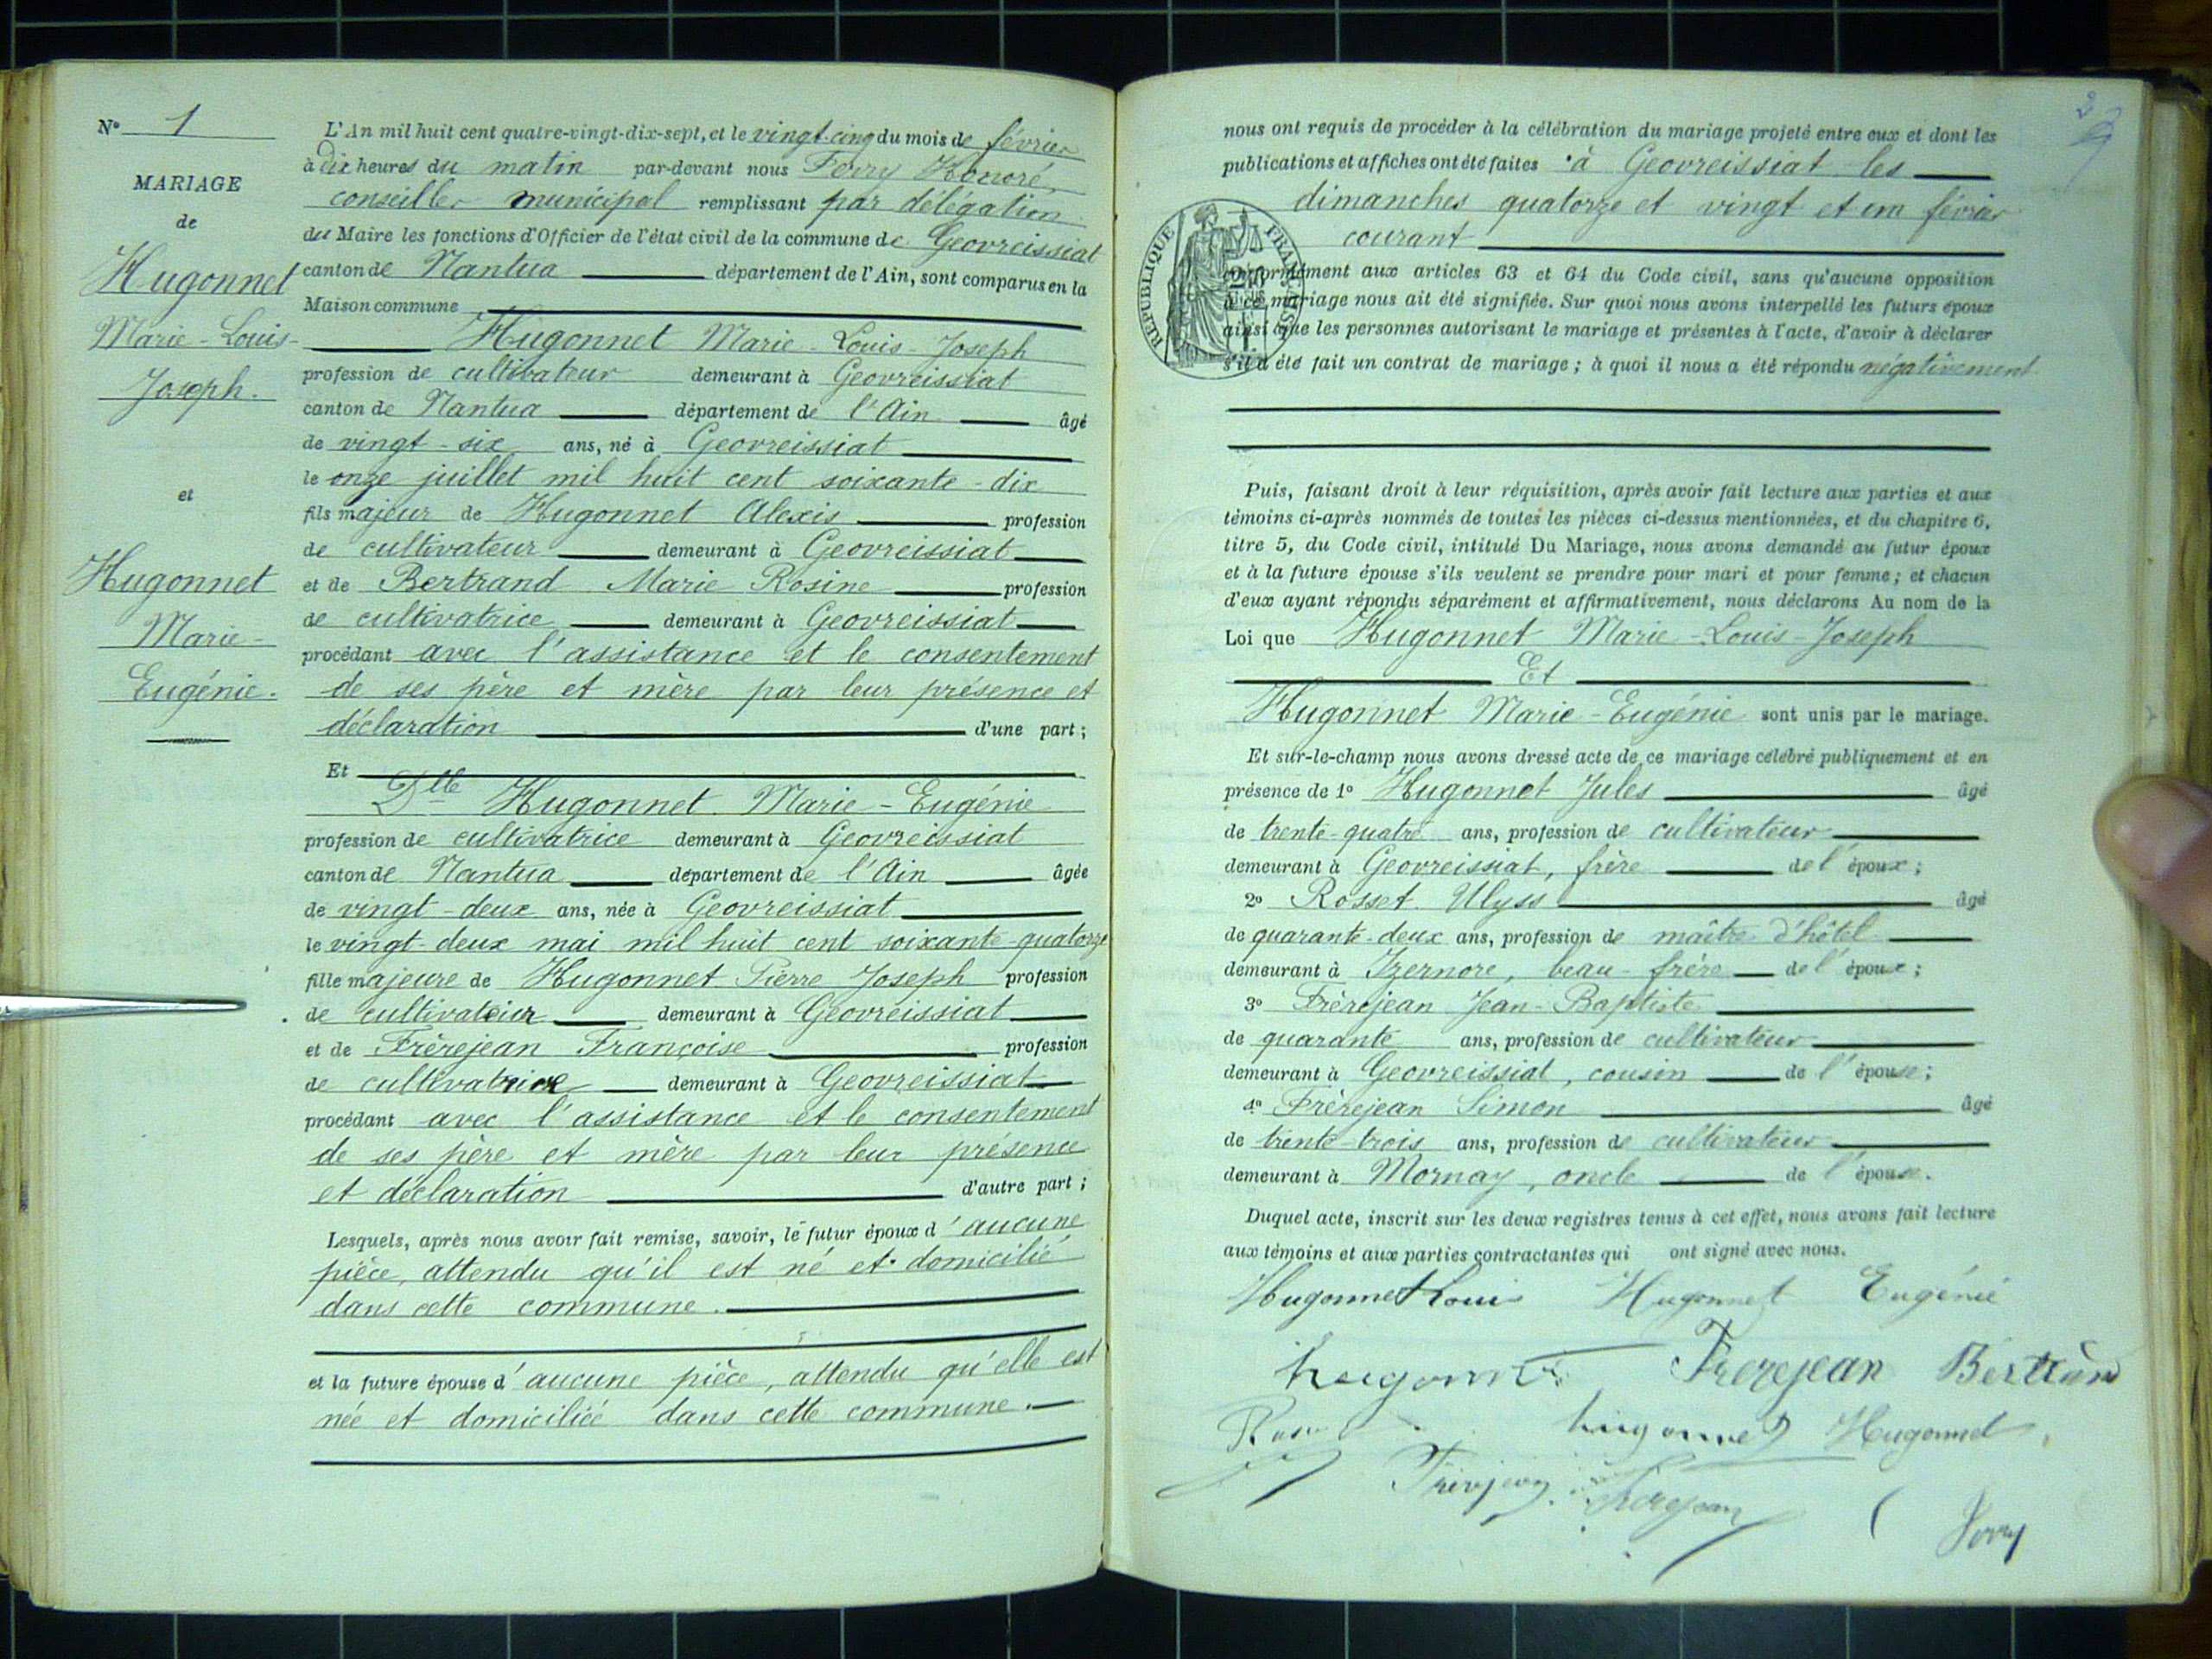 N° 1
MARIAGE
de
Hugonnet
Marie-Louis-
Joseph.
et
Hugonnet
Marie-
Eugénie.
L'An mil huit cent quatre-vingt-dix-sept, et le vingt-cinq du mois de février
à dix heures du matin par-devant nous Ferry Honoré,
conseiller municipal remplissant par délégation
du Maire les fonctions d'Officier de l'état civil de la commune de Geovreissiat
canton de Nantua département de l'Ain, sont comparus en la
Maison commune
Hugonnet Marie-Louis-Joseph
profession de cultivateur demeurant à Geovreissiat
canton de Nantua département de l'Ain âgé
de vingt-six ans, né à Geovreissiat
le onze juillet mil huit cent soixante-dix
fils majeur de Hugonnet Alexis profession
de cultivateur demeurant à Geovreissiat
et de Bertrand Marie Rosine profession
de cultivatrice demeurant à Geovreissiat
procédant avec l'assistance et le consentement
de ses père et mère par leur présence et
déclaration d'une part ;
Et
Dlle Hugonnet Marie-Eugénie
profession de cultivatrice demeurant à Geovreissiat
canton de Nantua département de l'Ain âgée
de vingt-deux ans, née à Geovreissiat
le vingt-deux mai mil huit cent soixante-quatorze
fille majeure de Hugonnet Pierre Joseph profession
de cultivateur demeurant à Geovreissiat
et de Frèrejean Françoise profession
de cultivatrice demeurant à Geovreissiat
procédant avec l'assistance et le consentement
de ses père et mère par leur présence
et déclaration d'autre part ;
Lesquels, après nous avoir fait remise, savoir, le futur époux d'aucune
pièce, attendu qu'il est né et domicilié
dans cette commune.
et la future épouse d'aucune pièce, attendu qu'elle est
née et domiciliée dans cette commune.
2
nous ont requis de procéder à la célébration du mariage projeté entre eux et dont les
publications et affiches ont été faites à Geovreissiat les
dimanches quatorze et vingt et un février
courant
RÉPUBLIQUE FRANÇAISE
conformément aux articles 63 et 64 du Code civil, sans qu'aucune opposition
à ce mariage nous ait été signifiée. Sur quoi nous avons interpellé les futurs époux
ainsi que les personnes autorisant le mariage et présentes à l'acte, d'avoir à déclarer
s'il a été fait un contrat de mariage ; à quoi il nous a été répondu négativement
Puis, faisant droit à leur réquisition, après avoir fait lecture aux parties et aux
témoins ci-après nommés de toutes les pièces ci-dessus mentionnées, et du chapitre 6,
titre 5, du Code civil, intitulé Du Mariage, nous avons demandé au futur époux
et à la future épouse s'ils veulent se prendre pour mari et pour femme ; et chacun
d'eux ayant répondu séparément et affirmativement, nous déclarons Au nom de la
Loi que Hugonnet Marie-Louis-Joseph
Et
Hugonnet Marie-Eugénie sont unis par le mariage.
Et sur-le-champ nous avons dressé acte de ce mariage célébré publiquement et en
présence de 1° Hugonnet Jules âgé
de trente-quatre ans, profession de cultivateur
demeurant à Geovreissiat, frère de l'époux ;
2° Rosset Ulyss âgé
de quarante-deux ans, profession de maître d'hôtel
demeurant à Izernore, beau-frère de l'époux ;
3° Frèrejean Jean-Baptiste
de quarante ans, profession de cultivateur
demeurant à Geovreissiat, cousin de l'épouse ;
4° Frèrejean Simon âgé
de trente-trois ans, profession de cultivateur
demeurant à Mornay, oncle de l'épouse.
Duquel acte, inscrit sur les deux registres tenus à cet effet, nous avons fait lecture
aux témoins et aux parties contractantes qui ont signé avec nous.
Hugonnet Louis Hugonnet Eugénie
hugonnet Frerejean
hugonnet Hugonnet
Frerejean